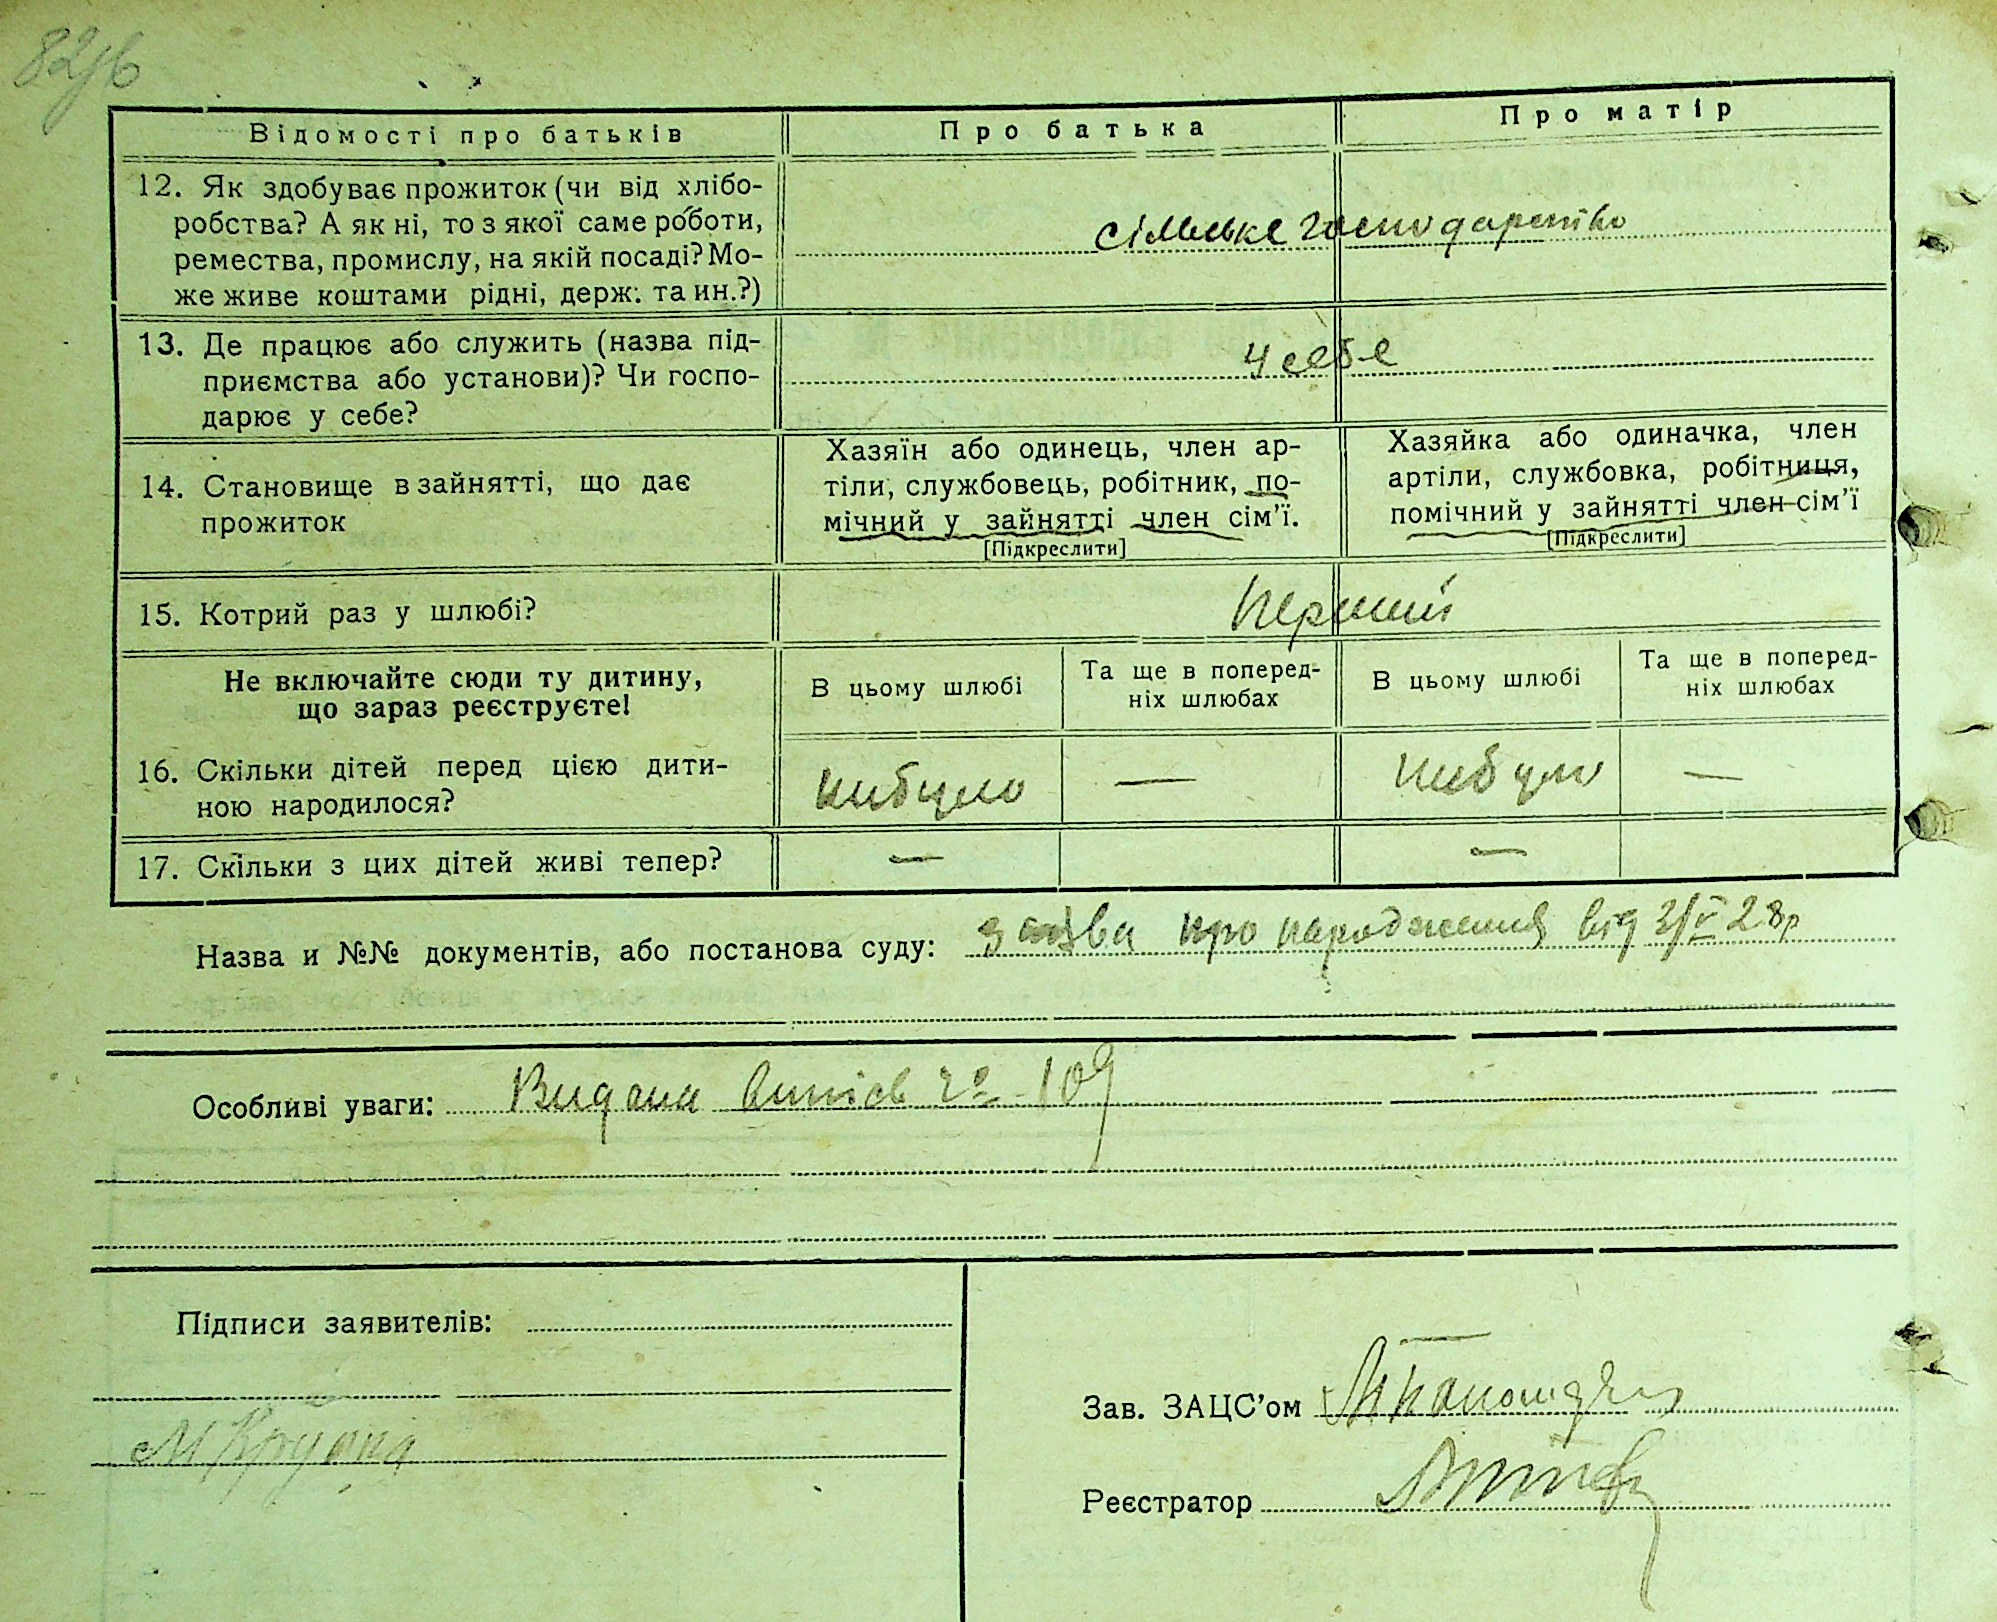 82
Відомості про батьків
Про батька
Про матір
12. Як здобуває прожиток (чи від хлібо-
робства? А як ні, то з якої саме роботи,
ремества, промислу, на якій посаді? Мо-
же живе коштами рідні, держ. та ин.?)
сільське господарство
13. Де працює або служить (назва під-
приємства або установи)? Чи госпо-
дарює у себе?
у себе
14. Становище в зайнятті, що дає
прожиток
Хазяїн або одинець, член ар-
тіли, службовець, робітник, по-
мічний у зайнятті член сім'ї.
[Підкреслити]
Хазяйка або одиначка, член
артіли, службовка, робітниця,
помічний у зайнятті член сім'ї
[Підкреслити]
15. Котрий раз у шлюбі?
Перший
Не включайте сюди ту дитину,
що зараз реєструєте!
В цьому шлюбі
Та ще в поперед-
ніх шлюбах
В цьому шлюбі
Та ще в поперед-
ніх шлюбах
16. Скільки дітей перед цією дити-
ною народилося?
небуло
—
небуло
—
17. Скільки з цих дітей живі тепер?
—
—
Назва и №№ документів, або постанова суду: про народження від 2/V 28р
Особливі уваги: Видани витісь 109
Підписи заявителів:
Зав. ЗАЦС'ом
Реєстратор